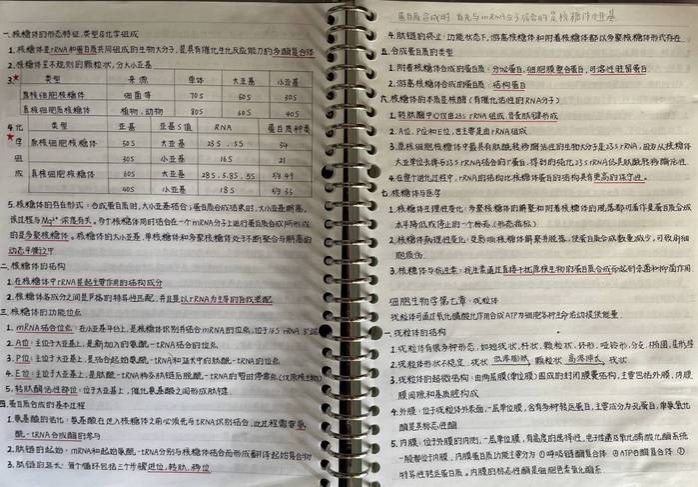 一.核糖体的形态特征,类型&化学组成
1.核糖体是rRNA和蛋白质共同组成的生物大分子,是具有催化生化反应能力的多酶复合体
2.核糖体呈不规则的颗粒状,分大小亚基
3.★ 类型 来源 单体 大亚基 小亚基
原核细胞核糖体 细菌等 70S 50S 30S
真核细胞质核糖体 植物,动物 80S 60S 40S
4.化学组成 ★
类型 亚基 亚基S值 RNA 蛋白质种类
原核细胞核糖体 50S 大亚基 23S.5S 34
30S 小亚基 16S 21
真核细胞核糖体 60S 大亚基 28S.5.8S.5S 约49
40S 小亚基 18S 约33
5.核糖体的存在形式:合成蛋白质时,大小亚基结合;蛋白质合成结束时,大小亚基解离,
该过程与Mg²⁺浓度有关。多个核糖体同时结合在一个mRNA分子上进行蛋白质合成所形成
的是多聚核糖体。核糖体的大小亚基,单核糖体和多聚核糖体处于不断聚合与解离的
动态平衡之中
二.核糖体的结构
1.在核糖体中rRNA是起主要作用的结构成分
2.核糖体各成分之间是严格的特异性匹配,并且是以rRNA为主导的自我装配
三.核糖体的功能位点
1.mRNA结合位点:在小亚基平台上,是核糖体识别并结合mRNA的位点,位于16S rRNA 3'端
2.A位:主位于大亚基上,是新加入的氨酰-tRNA结合的位点
3.P位:主位于大亚基上,是结合起始氨酰-tRNA和延长中的肽酰-tRNA的位点
4.E位:主位于大亚基上,是肽酰-tRNA移交肽链后脱酰-tRNA的暂时停靠点(仅原核生物)
5.转肽酶活性部位:位于大亚基上,催化氨基酸之间形成肽键
四.蛋白质合成的基本过程
1.氨基酸的活化:氨基酸在进入核糖体之前必须先与tRNA识别结合,此过程需要氨
酰-tRNA合成酶的参与
2.肽链的起始:mRNA和起始氨酰-tRNA分别与核糖体结合而形成翻译起始复合物
3.肽链的延长:每个循环包括三个步骤进位,转肽,移位
蛋白质合成时,首先与mRNA分子结合的是核糖体小亚基
4.肽链的终止:功能状态下,游离核糖体和附着核糖体都以多聚核糖体形式存在
五.合成蛋白质的类型
1.附着核糖体合成的蛋白质:分泌蛋白,细胞膜整合蛋白,可溶性驻留蛋白
2.游离核糖体合成的蛋白质:结构蛋白
六.核糖体的本质是核酶(有催化活性的RNA分子)
1.转肽酶中心仅由23S rRNA组成,替肽键形成
2.A位,P位和E位,也主要是由rRNA组成
3.原核细胞核糖体中最具有肽酰转移酶活性的生物大分子是23S rRNA,因为从核糖体
大亚基中去掉与23S rRNA结合的r蛋白,得到的纯化23S rRNA仍具肽酰转移酶活性.
4.在整个进化过程中,rRNA的结构比核糖体蛋白的结构具有更高的保守性。
七.核糖体与医学
1.核糖体生理性变化:多聚核糖体的解聚和附着核糖体的脱落都可看作是蛋白质合成
水平降低或停止的一个标志(形态指标)
2.核糖体病理性变化:受影响核糖体解聚并脱落,使蛋白质合成数量减少,可收缩细
胞损伤
3.核糖体与抗生素:抗生素通过直接干扰原核生物的蛋白质合成而起到杀菌和抑菌作用
细胞生物学第七章:线粒体
线粒体可通过氧化磷酸化作用合成ATP为细胞各种生命活动提供能量。
一.线粒体的结构
1.线粒体有很多种形态,如短线状,杆状,颗粒状,环形,哑铃形,分叉,椭圆,星形等
2.线粒体形状不稳定 线状 低渗膨胀 颗粒状 高渗伸长 线状
3.线粒体的超微结构:由两层膜(单位膜)围成的封闭膜囊结构,主要包括外膜,内膜,
膜间隙和基质腔构成
4.外膜:位于线粒体外表面,一层单位膜,含有多种转运蛋白,主要成分为孔蛋白,单胺氧化
酶是其标志性酶
5.内膜:位于外膜的内侧,一层单位膜,有高度的选择性,电子传递&氧化磷酸化酶系统
一般都位于内膜,内膜蛋白质功能主要分为 ①呼吸链酶复合体 ②ATP合酶复合体 ③
特异性转运蛋白。内膜的标志性酶是细胞色素氧化酶系